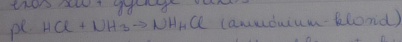 pl HCl + NH3 → NH4Cl (ammónium-klorid)